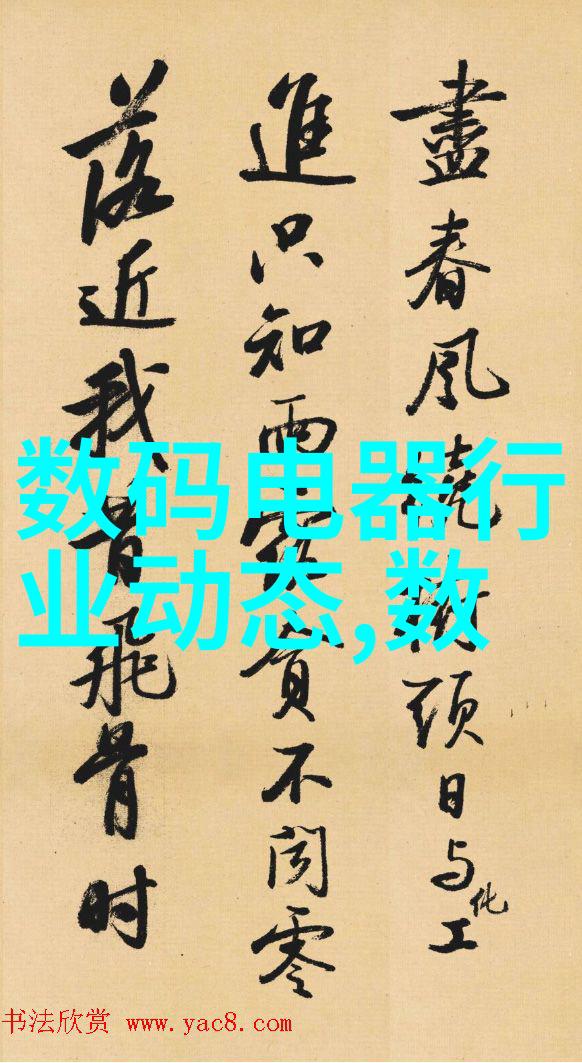 盡春風繞樹頭日与化工
進只知雨露貪不聞零
落近我昔飛骨时
数码电器行
业动态,数
书法欣赏 www.yac8.com